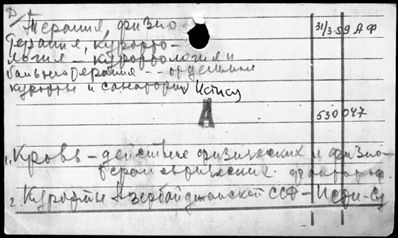 Д
Терапия, физио-
терапия, курорто-
логия – курортология и
бальнеотерапия – отдельные
курорты и санатории Истису
31/3-59 АФ
А
530047
1. Кровь – действие физических и физио-
терапевтических факторов
2. Курорты Азербайджанской ССР – Исти-Су